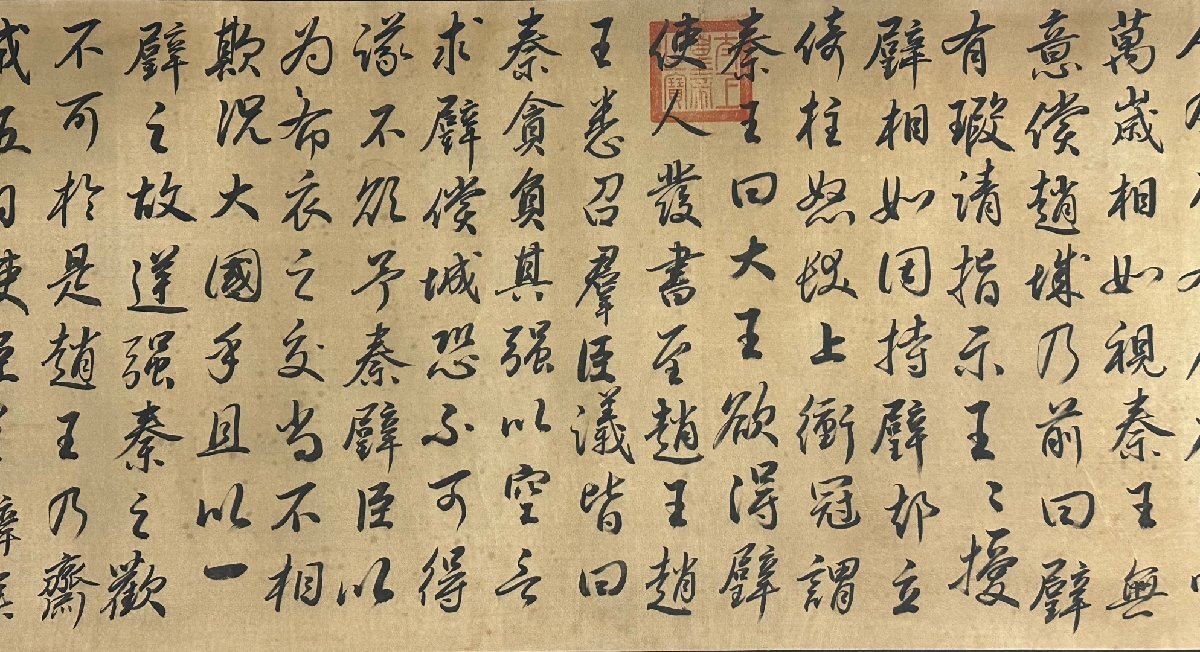 萬歲相如視秦王無
意償趙城乃前曰璧
有瑕請指示王〻授
璧相如因持璧却立
倚柱怒髮上衝冠謂
秦王曰大王欲得璧
使人發書至趙王趙
王悉召羣臣議皆曰
秦貪負其强以空言
求璧償城恐不可得
議不欲予秦璧臣以
為布衣之交尚不相
欺況大國乎且以一
璧之故逆强秦之歡
不可於是趙王乃齋